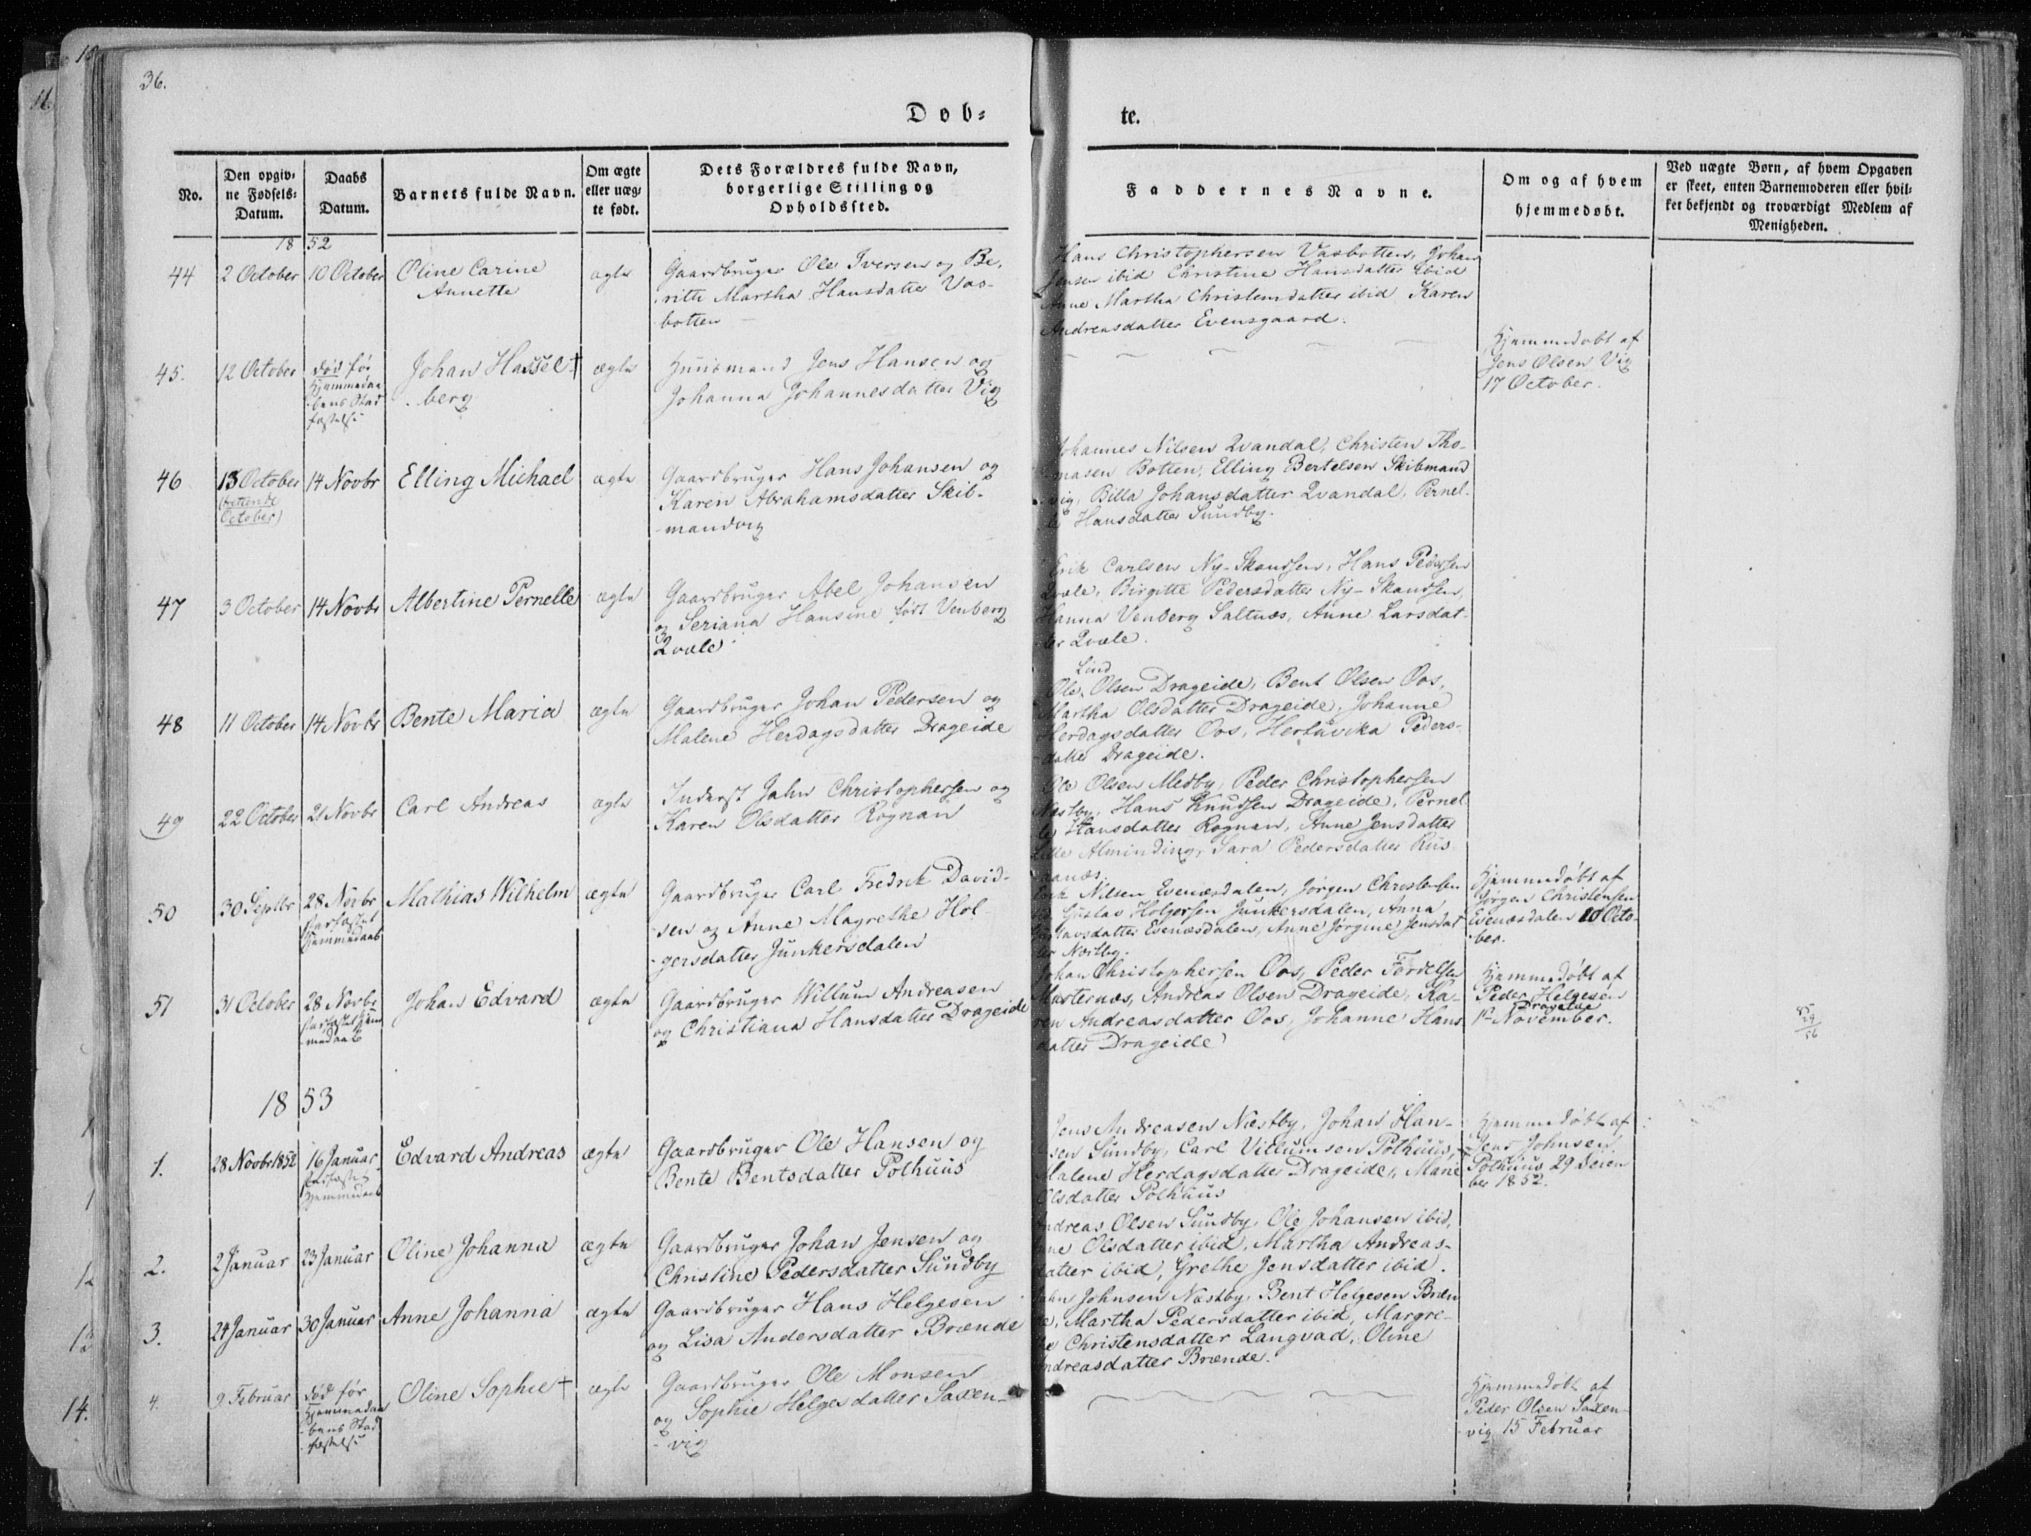 36.
Døb-
te.
No.
Den opgiv-
ne Fødsels-
Datum.
Daabs
Datum.
Barnets fulde Navn.
Om ægte
eller uæg-
te født.
Dets Forældres fulde Navn,
borgerlige Stilling og
Opholdssted.
Faddernes Navne.
Om og af hvem
hjemmedøbt.
Ved uægte Børn, af hvem Opgaven
er skeet, enten Barnemoderen eller hvil-
ket bekjendt og troværdigt Medlem af
Menigheden.
18 52
44
2 October
10 October
Oline Carine
Annette
ægte
Gaardbruger Ole Iversen og Be-
rith Martha Hansdatter Vas-
botten
Hans Christophersen Vasbotten, Johan
Jensen ibid Christine Hansdatter ibid
Anne Martha Christensdatter ibid Karen
Andreasdatter Evensgaard.
45.
12 October
død før
Hjemmedaa-
bens Stad
fæstelse
Johan Hassel-†
berg
ægte
Huusmand Jens Hansen og
Johanna Johannesdatter Vig
Hjemmedøbt af
Jens Olsen Vig
17 October.
46
13 October
October)
14 Novbr
Elling Michael
ægte
Gaardbruger Hans Johansen og
Karen Abrahamsdatter Skib-
mandvig
Johannes Nilsen Qvandal, Christen Tho-
masen Botten, Elling Bertelsen Skibmand
vig, Billa Johansdatter Qvandal, Pernel-
le Hansdatter Sundby.
47
3 October
14 Novbr
Albertine Pernelle
ægte
Gaardbruger Abel Johansen
og Seriana Hansine født Venberg
Qvale
Erik Carlsen Ny-Skandsen, Hans Pedersen
Qvale, Birgitte Pedersdatter Ny-Skandsen,
Hanna Venberg Saltnæs, Anne Larsdat-
ter Qvale.
48
11 October
14 Novbr
Bente Maria
ægte
Gaardbruger Johan Pedersen og
Malene Herdagsdatter Drageide
Lund
Ole Olsen Drageide, Bent Olsen Oos,
Martha Olsdatter Drageide, Johanne
Herdagsdatter Oos, Hertuvika Peders-
datter Drageide.
49
22 October
21 Novbr
Carl Andreas
ægte
Inderst John Christophersen og
Karen Olsdatter Rognan
Ole Olsen Medby, Peder Christophersen
Næstby, Hans Knudsen Drageide, Pernel
le Hansdatter Rognan, Anne Jensdatter
Lille Alminding, Sara Pedersdatter Rus
aanæs.
50
30 Septbr
28 Novbr
Hjemmedaab
Mathias Wilhelm
ægte
Gaardbruger Carl Fredrik David-
sen og Anne Magrethe Hol-
gersdatter Junkersdalen
Erik Nilsen Evenæsdalen, Jørgen Christensen
Gustav Holgersen Junkersdalen, Anna
Gustavsdatter Evenæsdalen, Anne Jørgine Jensdat
ter Nestby.
Hjemmedøbt af
Jørgen Christensen
Evenæsdalen 10 Octo-
ber.
51
31 October
28 Novbr
Johan Edvard
ægte
Gaardbruger Willum Andreasen
og Christiana Hansdatter Drageide
Johan Christophersen Oos, Peder Fordelsen
Marternæs, Andreas Olsen Drageide, Ka-
ren Andreasdatter Oos, Johanne Hans
datter Drageide
Hjemmedøbt af
Peder Helgesen
Drageide
1ste November.
18 53
1.
28 Novbr 1852
16 Januar
Hjemmedaab
Edvard Andreas
ægte
Gaardbruger Ole Hansen og
Bente Bentsdatter Pothuus
Jens Andreasen Næstby, Johan Han-
sen Sundby, Carl Villumsen Pothuus,
Malene Herdagsdatter Drageide, Marie
Olsdatter Pothuus
Hjemmedøbt af
Jens Johnsen
Pothuus 29 Decem
ber 1852.
2.
2 Januar
23 Januar
Oline Johanna
ægte
Gaardbruger Johan Jensen og
Christine Pedersdatter Sundby
Andreas Olsen Sundby, Ole Johansen ibid,
Olsdatter ibid, Martha Andreas-
datter ibid, Grethe Jensdatter ibid.
3.
24 Januar
30 Januar
Anne Johanna
ægte
Gaardbruger Hans Helgesen
og Lisa Andersdatter Brænde
John Johnsen Næstby, Bent Helgesen Bræn
de, Martha Pedersdatter ibid, Margre-
the Christensdatter Langvad, Oline
Andreasdatter Brænde.
4.
9 Februar
død før
Hjemmedaa
bens Stad
fæstelse
Oline Sophie †
ægte
Gaardbruger Ole Monsen
og Sophie Helgesdatter Saxen-
vig
Hjemmedøbt af
Peder Olsen Saxen-
vig 15 Februar
14.